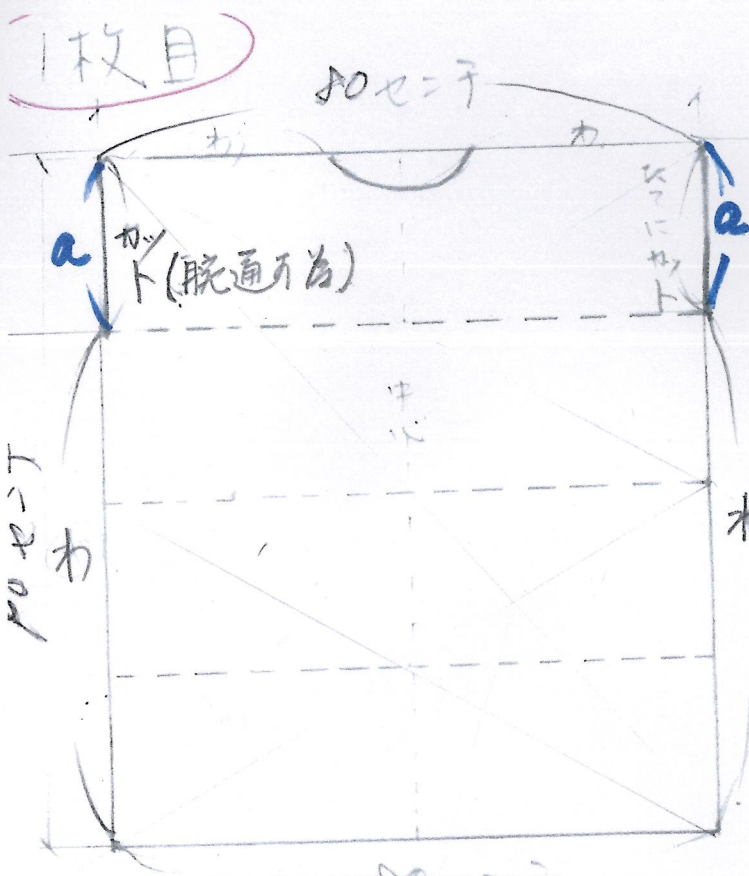 1枚目
80センチ
わ
わ
a
カット(腕通す為)
たてにカット
a
中心
80センチ
わ
わ